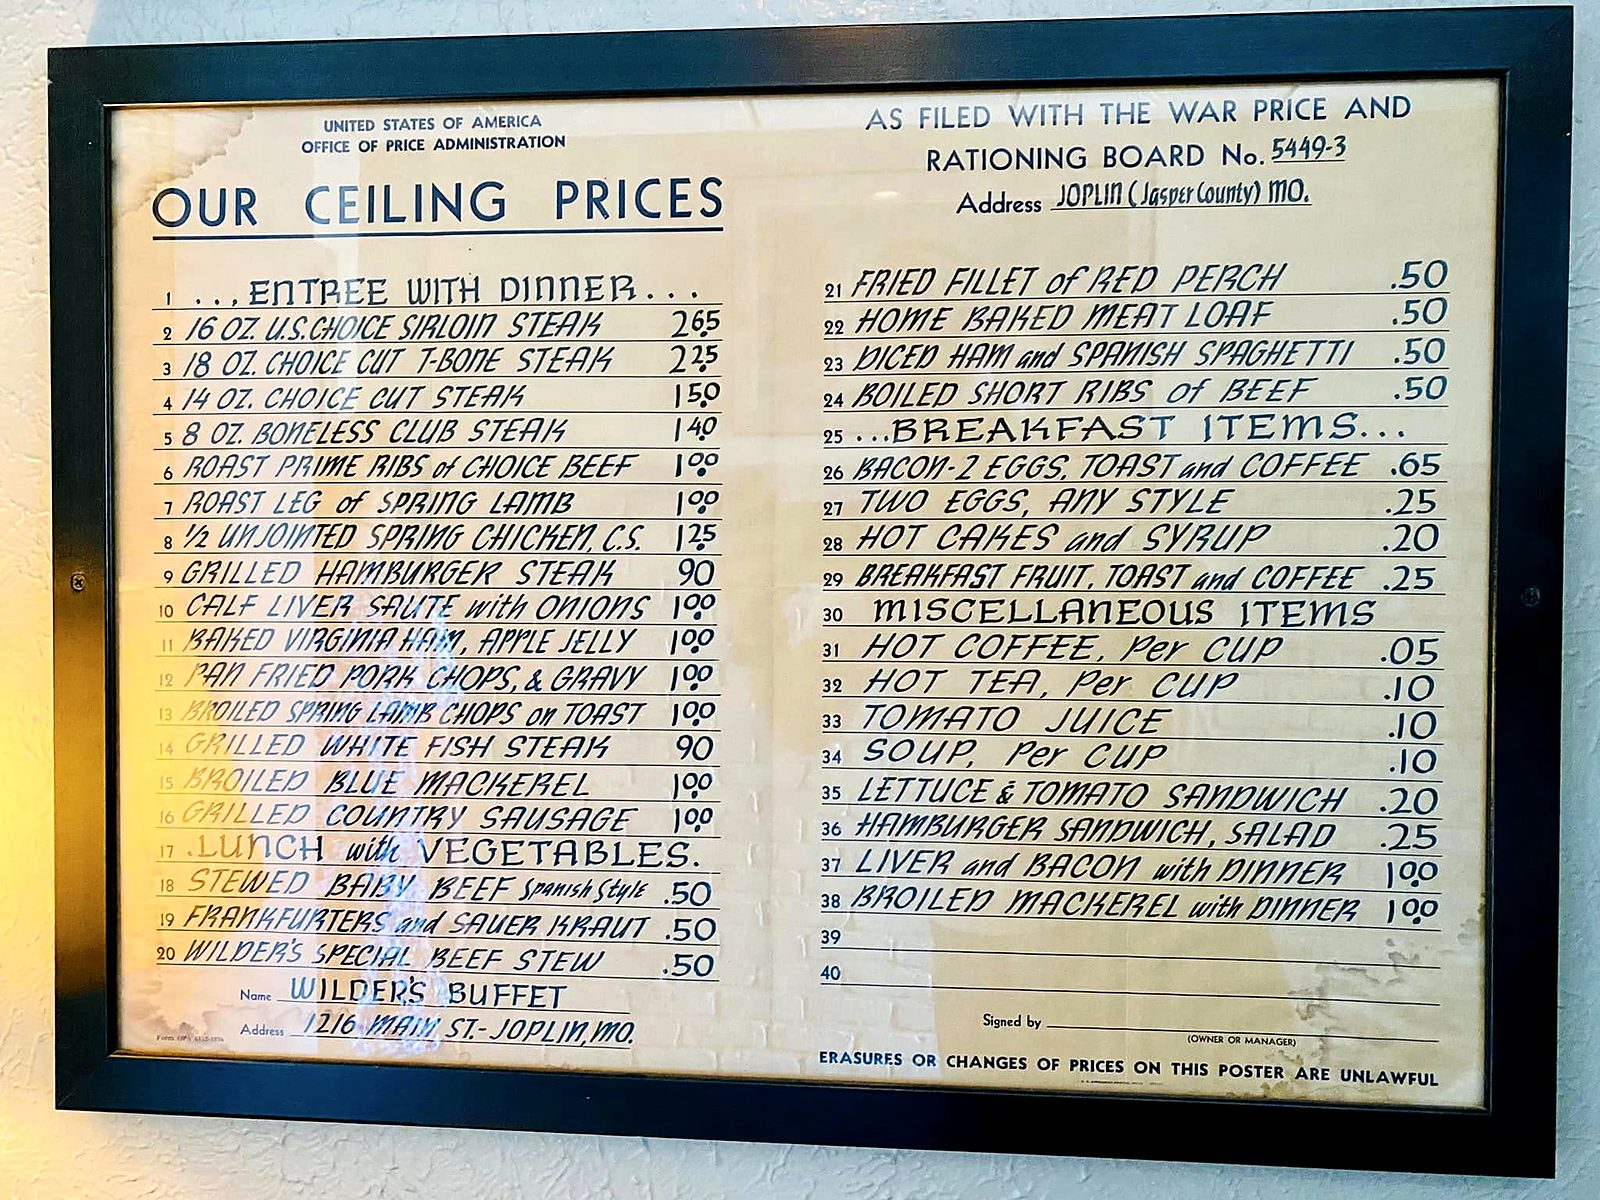 UNITED STATES OF AMERICA
OFFICE OF PRICE ADMINISTRATION
OUR CEILING PRICES
1 ... ENTREE WITH DINNER...
2 16 OZ. U.S. CHOICE SIRLOIN STEAK 2.65
3 18 OZ. CHOICE CUT T-BONE STEAK 2.25
4 14 OZ. CHOICE CUT STEAK 1.50
5 8 OZ. BONELESS CLUB STEAK 1.40
6 ROAST PRIME RIBS of CHOICE BEEF 1.00
7 ROAST LEG of SPRING LAMB 1.00
8 1/2 UNJOINTED SPRING CHICKEN, C.S. 1.25
9 GRILLED HAMBURGER STEAK 90
10 CALF LIVER SAUTE with ONIONS 1.00
11 BAKED VIRGINIA HAM, APPLE JELLY 1.00
12 PAN FRIED PORK CHOPS, & GRAVY 1.00
13 BROILED SPRING LAMB CHOPS on TOAST 1.00
14 GRILLED WHITE FISH STEAK 90
15 BROILED BLUE MACKEREL 1.00
16 GRILLED COUNTRY SAUSAGE 1.00
17 .LUNCH with VEGETABLES.
18 STEWED BABY BEEF Spanish Style .50
19 FRANKFURTERS and SAUER KRAUT .50
20 WILDER'S SPECIAL BEEF STEW .50
Name WILDER'S BUFFET
Address 1216 MAIN ST.- JOPLIN, MO.
AS FILED WITH THE WAR PRICE AND
RATIONING BOARD No. 5449-3
Address JOPLIN (Jasper County) MO.
21 FRIED FILLET of RED PERCH .50
22 HOME BAKED MEAT LOAF .50
23 DICED HAM and SPANISH SPAGHETTI .50
24 BOILED SHORT RIBS of BEEF .50
25 ...BREAKFAST ITEMS...
26 BACON-2 EGGS, TOAST and COFFEE .65
27 TWO EGGS, ANY STYLE .25
28 HOT CAKES and SYRUP .20
29 BREAKFAST FRUIT, TOAST and COFFEE .25
30 MISCELLANEOUS ITEMS
31 HOT COFFEE, Per CUP .05
32 HOT TEA, Per CUP .10
33 TOMATO JUICE .10
34 SOUP, Per CUP .10
35 LETTUCE & TOMATO SANDWICH .20
36 HAMBURGER SANDWICH, SALAD .25
37 LIVER and BACON with DINNER 1.00
38 BROILED MACKEREL with DINNER 1.00
39
40
Signed by
(OWNER OR MANAGER)
ERASURES OR CHANGES OF PRICES ON THIS POSTER ARE UNLAWFUL